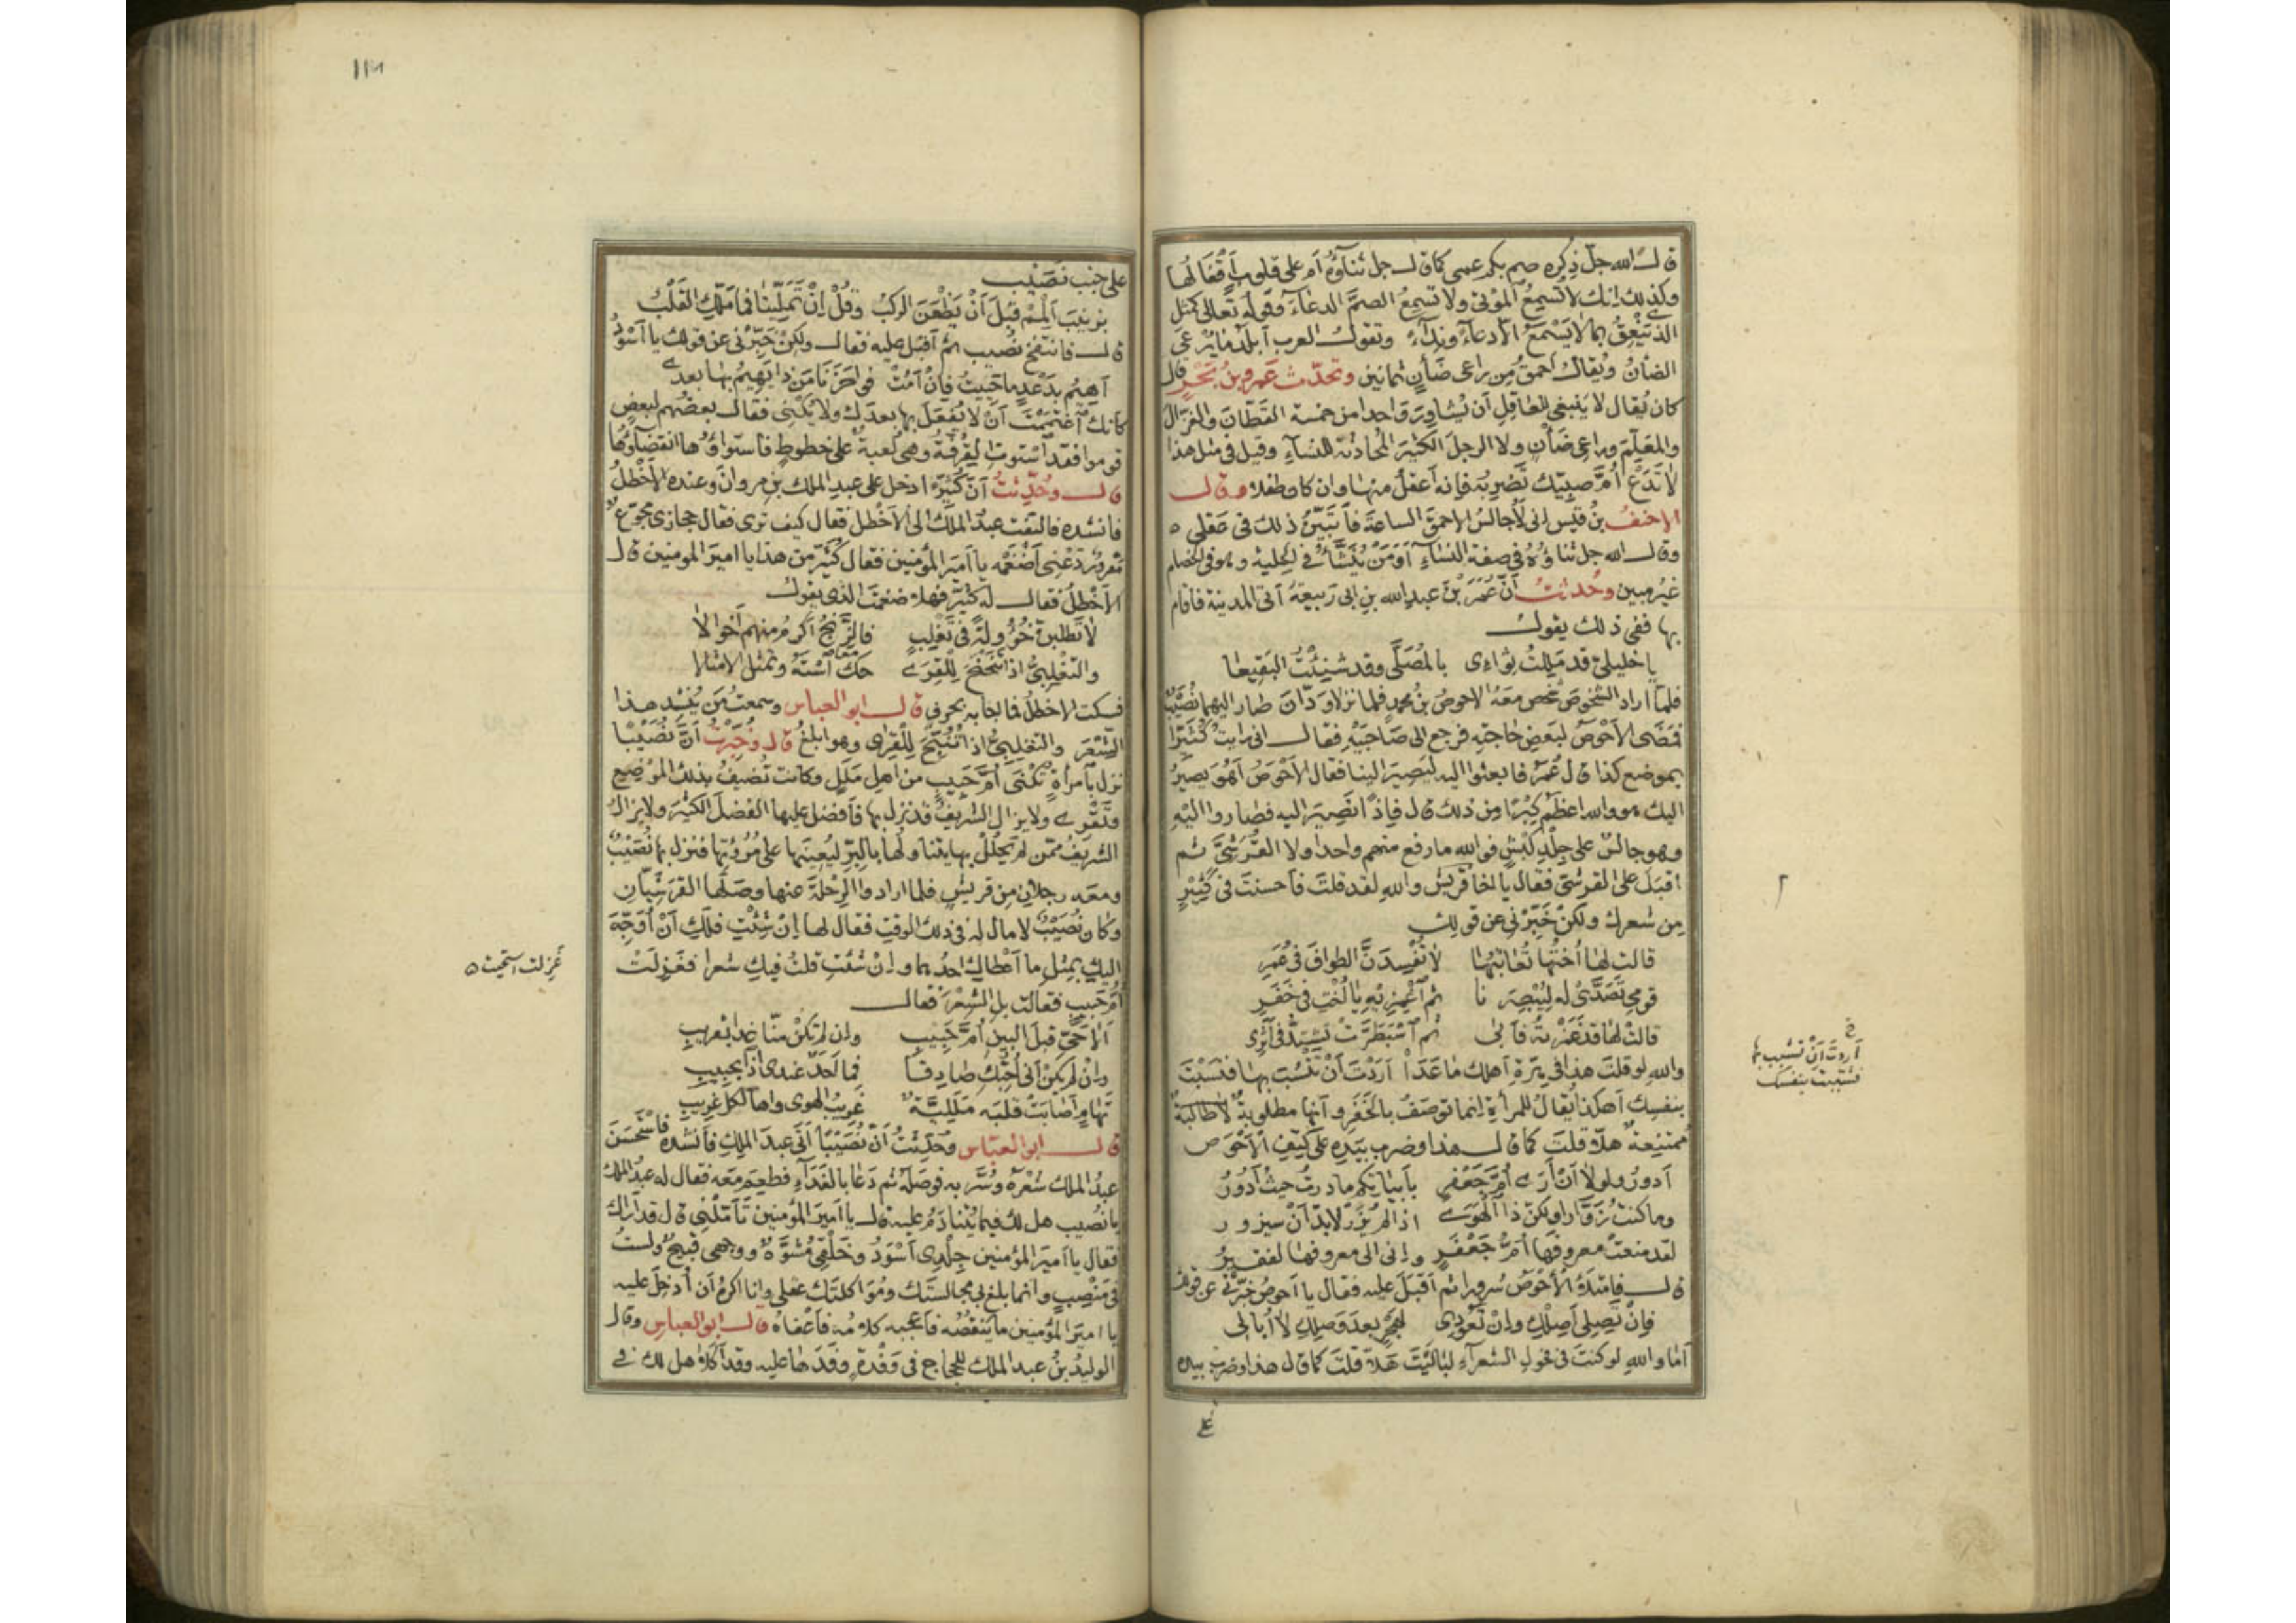 قال الله جل ذكره صم بكم عمى كما قال جل ثناؤه أم على قلوب أقفالها
وكذلك إنك لا تسمع الموتى ولا تسمع الصم الدعاء وقوله تعالى كمثل
الذي ينعق بما لا يسمع إلا دعاء ونداء وتقول العرب أبلد ما يرعى
الضأن ويقال أحمق من راعى ضأن ثمانين وتحدث عمرو بن بحر قال
كان يقال لا ينبغى للعاقل أن يشاور واحدا من خمسة القطان والغزال
والمعلم وراعى ضأن ولا الرجل الكثير المحادثة للنساء وقيل فى مثل هذا
لا تدع أم صبيك تضربه فإنه أعقل منها وان كان طفلا وقال
الاحنف بن قيس إنى لأجالس الاحمق الساعة فأتبين ذلك فى عقلى ه
وقال الله جل ثناؤه فى صفة النساء أومن ينشأ في الحلية وهو فى الخصام
غير مبين وحدثت أن عمر بن عبد الله بن ابى ربيعة أتى المدينة فاقام
بها ففى ذلك يقول
يا خليلى قد مللت ثواءى بالمصلى وقد شنئت البقيعا
فلما اراد الشخوص شخص معه الاحوص بن محمد فلما نزلا ودان صار اليهما نصيب
فمضى الأحوص لبعض حاجته فرجع الى صاحبيه فقال انى رايت كثيرا
بموضع كذا قال عمر فابعثوا اليه ليصير الينا فقال الأحوص أهو يصير
اليك هو والله اعظم كبرا من ذلك قال فإذا نصير اليه فصاروا اليه
وهو جالس على جلد كبش فو الله ما رفع منهم واحدا ولا القرشي ثم
اقبل على القرشى فقال يا اخا قريش والله لقد قلت فأحسنت فى كثير
من شعرك ولكن خبرنى عن قولك
قالت لها أختها تعاتبها لا تفسدن الطواف فى عمر
قومى تصدى له ليبصرنا ثم اغمزيه يا اخت فى خفر
قالت لها قد غمزته فأبى ثم اسبطرت تشتد فى أثرى
والله لو قلت هذا فى هرة أهلك ما عدا أردت أن تنسب بها فنسبت
بنفسك أهكذا يقال للمرأة إنما توصف بالخفر وأنها مطلوبة لا طالبة
ممتنعة هلا قلت كما قال هذا وضرب بيده على كتف الأحوص
أدور ولولا أن أرى أم جعفر بأبياتكم ما درت حيث أدور
وما كنت زوارا ولكن ذا الهوى اذا لم يزر لابد أن سيزور
لقد منعت معروفها أم جعفر وإنى الى معروفها لفقير
قال فامتلأ الأحوص سرورا ثم أقبل عليه فقال يا أحوص خبرنى عن قولك
فإن تصلى أصلك وإن تعودى لهجر بعد وصلك لا أبالى
أما والله لو كنت فى فحول الشعراء لباليت هلا قلت كما قال هذا وضرب بيده
على
خ
أردت أن تنسب بها
فنسبت بنفسك
على جنب نصيب
بزينب ألمم قبل أن يظعن الركب وقل إن تملينا فما ملك القلب
قال فانتفخ نصيب ثم أقبل عليه فقال ولكن خبرنى عن قولك يا أسود
أهيم بدعد ما حييت فإن أمت فوا حزنا من ذا يهيم بها بعدى
كأنك اغتممت أن لا يفعل بها بعدك ولا يكنى فقال بعضهم لبعض
قوموا فقد استوت القرقة وهى لعبة على خطوط فاستواؤها انقضاؤها
قال وحدثت أن كثيرا دخل على عبد الملك بن مروان وعنده الأخطل
فانشده فالتفت عبد الملك الى الأخطل فقال كيف ترى فقال حجازى مجوع
مقرور دعنى أضغمه يا أمير المؤمنين فقال كثير من هذا يا امير المومنين قال
الأخطل فقال له كثير فهلا ضغمت الذى يقول
لا تطلبن خؤولة فى تغلب فالزنج أكرم منهم أخوالا
والتغلبى اذا تنحنح للقرى حك استه وتمثل الامثالا
فسكت الاخطل فما اجابه بحرف قال ابو العباس وسمعت من ينشد هذا
الشعر والتغلبى اذا تنبح للقرى وهو ابلغ قال وخبرت أن نصيبا
نزل بامرأة تكنى أم حبيب من اهل ملل وكانت تضيف بذلك الموضع
وتقرى ولا يزال الشريف قد نزل بها فأفضل عليها الفضل الكثير ولا يزال
الشريف ممن لم يحلل بها يتناولها بالبر ليعينها على مروتها فنزل بها نصيب
ومعه رجلان من قريش فلما ارادوا الرحلة عنها وصلها القرشيان
وكان نصيب لا مال له فى ذلك الوقت فقال لها إن شئت فلك أن أوجه
اليك بمثل ما أعطاك احدهما وإن شئت قلت فيك شعرا فغزلت
أم حبيب فقالت بل الشعر فقال
ألا حى قبل البين أم حبيب وإن لم تكن منا غدا بقريب
وإن لم يكن أنى أحبك صادقا فما أحد عندى اذا بحبيب
تهام أصابت قلبه مللية غريب الهوى واها لكل غريب
قال ابو العباس وحدثت أن نصيبا أتى عبد الملك فأنشده فاستحسن
عبد الملك شعره وسر به فوصله ثم دعا بالغداء فطعم معه فقال له عبد الملك
يا نصيب هل لك فيما يتنادم عليه قال يا أمير المؤمنين تأملنى قال قد أراك
فقال يا أمير المؤمنين جلدى أسود وخلقى مشوه ووجهى قبيح ولست
فى منصب وانما بلغ بى مجالستك ومؤاكلتك عقلى وانا اكره أن أدخل عليه
يا امير المؤمنين ما ينقصه فأعجبه كلامه فأعفاه قال ابو العباس وقال
الوليد بن عبد الملك للحجاج فى وفدة وفدها عليه وقد أكلا هل لك في
غزلت استحيت ه